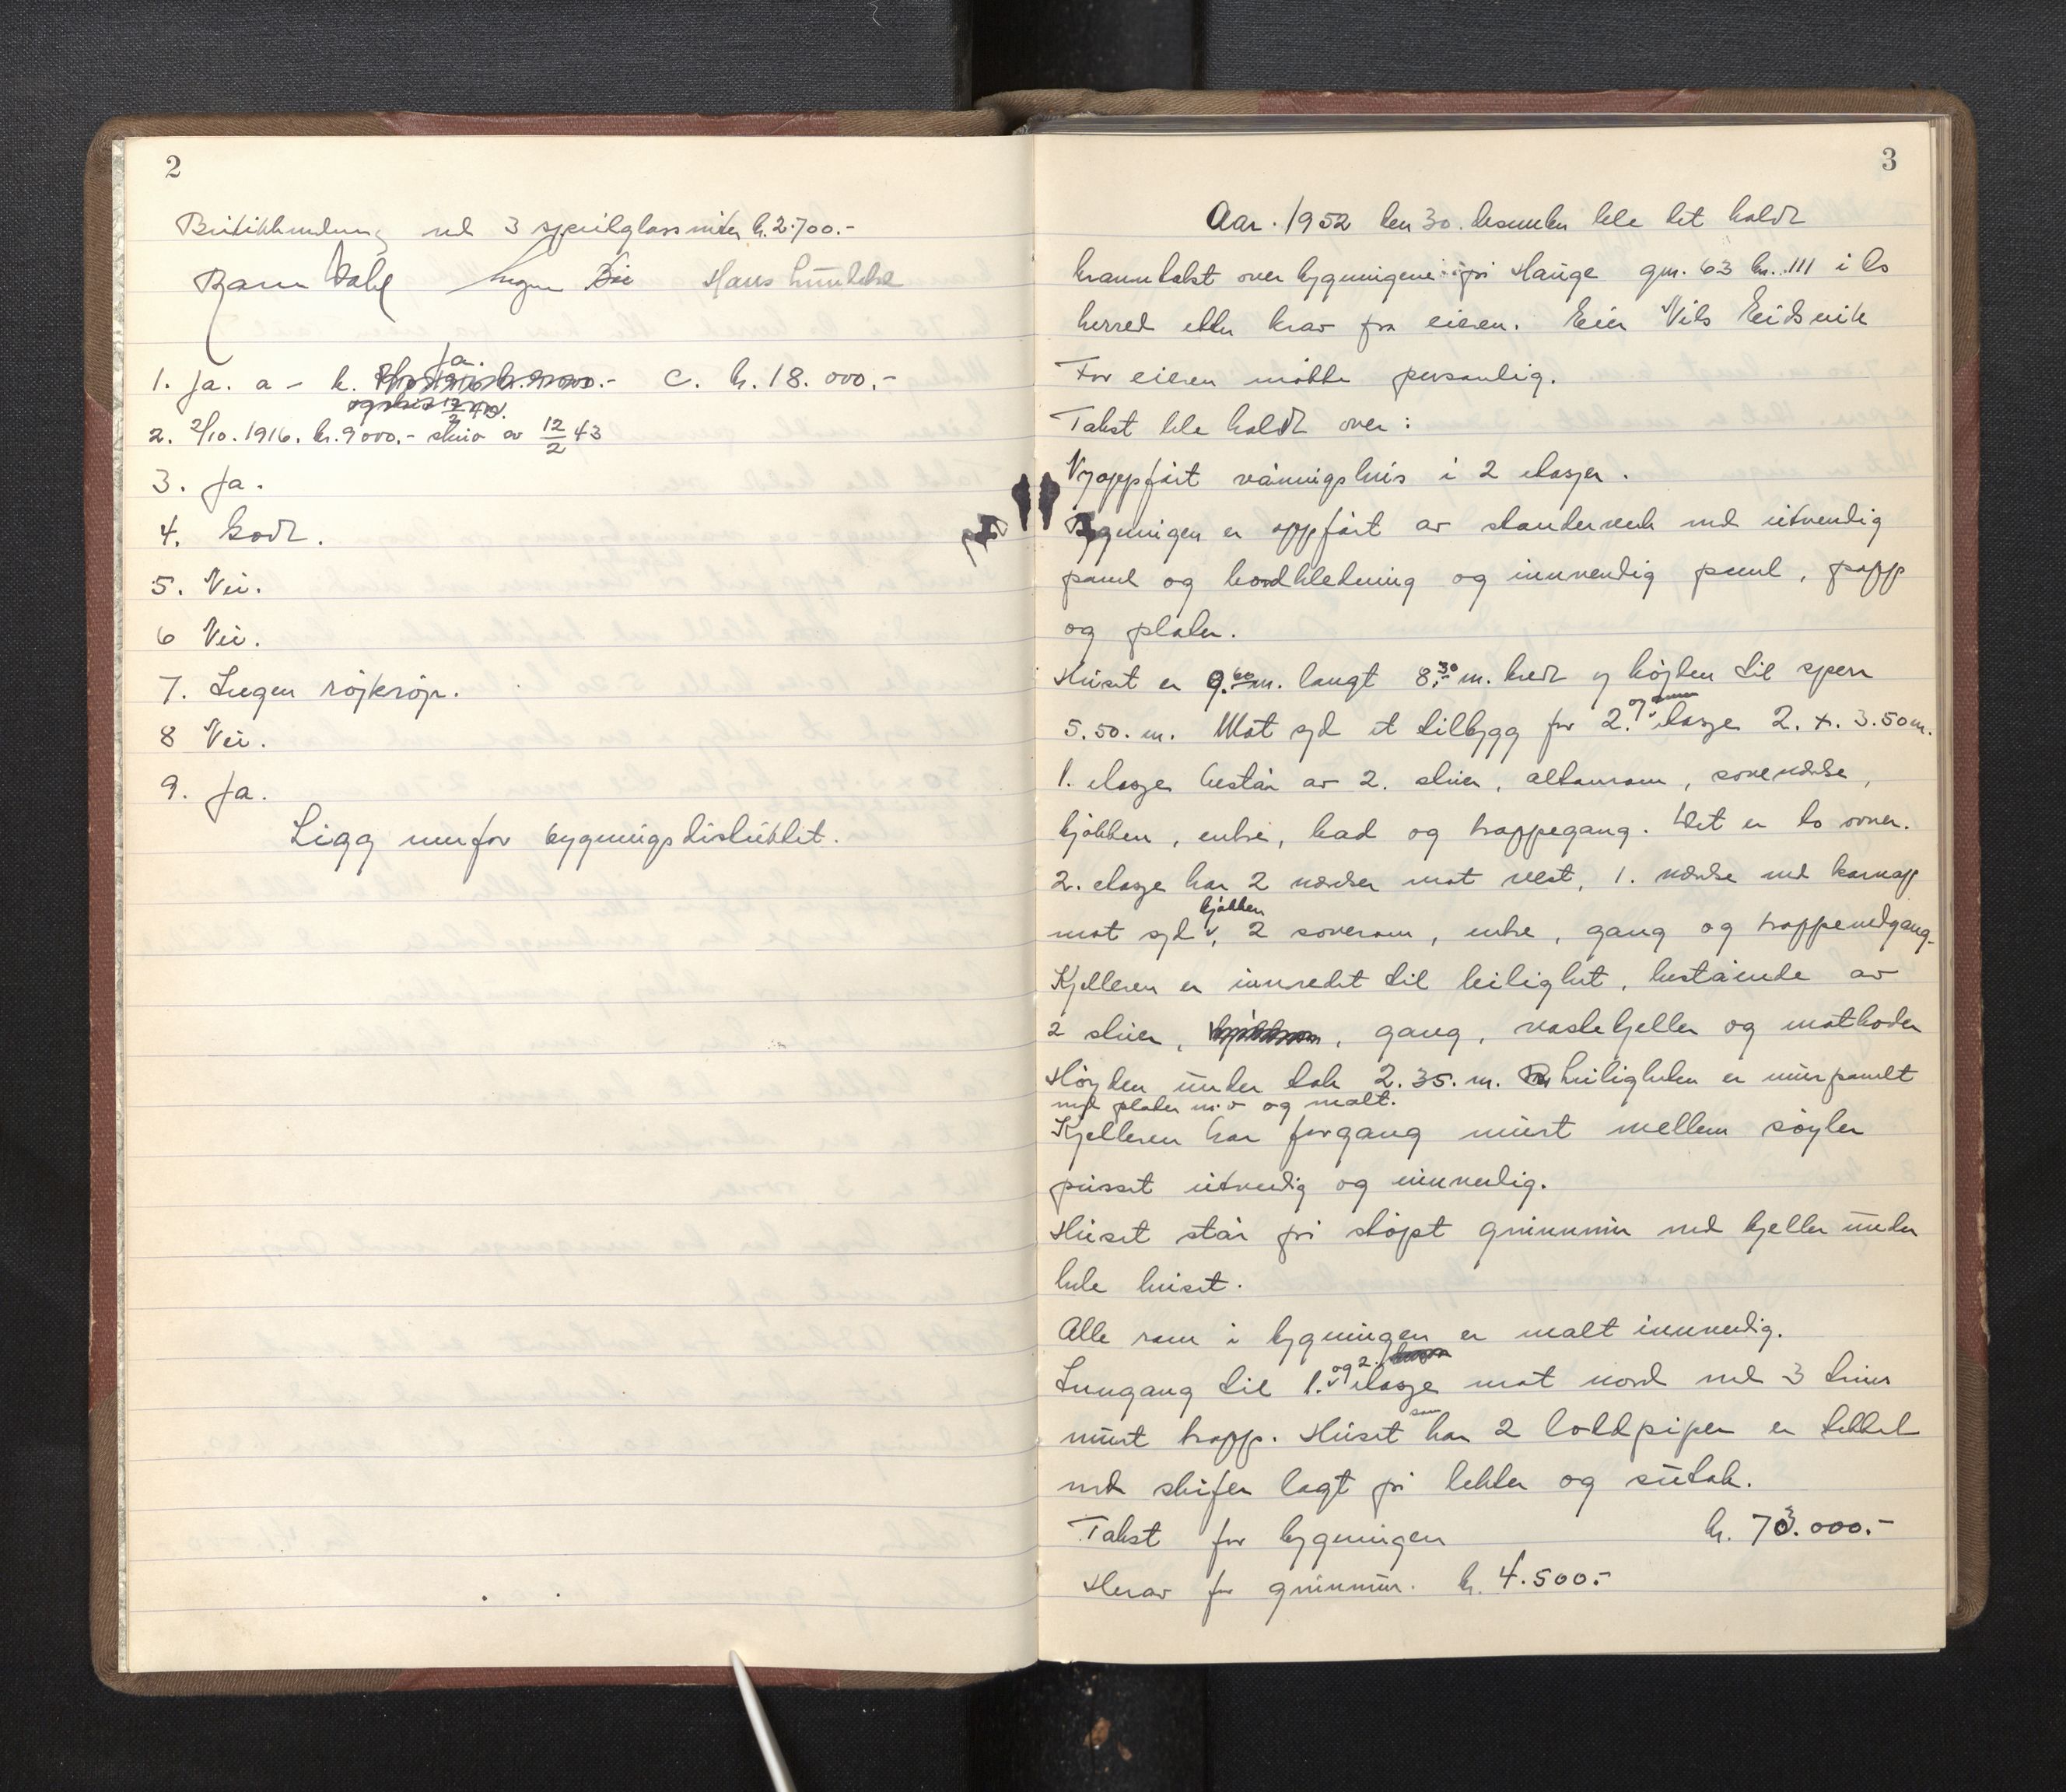 2
Butikkinnredning med 3 speilglassruter kr. 2.700.-
Hans
Ja.
1. Ja. a - b. c. kr. 18.000.-
2. 2/10. 1916. kr. 9000.- skriv av 12/2 43
3. Ja.
4. Godt.
5. Nei.
6 Nei.
7. Ingen röjkröjr.
8 Nei.
9. Ja.
Ligg innfor bygningsdistriktet.
3
Aar. 1952 den 30. desember ble det holdt
branntakst over bygningene på Hauge gnr. 63 bnr. 111 i Os
herred etter krav fra eieren. Eier Nils Eidsvik
For eieren møtte personlig.
Takst ble holdt over:
Nyoppført våningshus i 2 etasjer.
Bygningen er oppført av standerverk med utvendig
panel og bordkledning og innvendig panel, papp
og plater.
Huset er 9.60 m. langt 8.30 m. bredt og højden til sperr
5.50. m. Mot syd et tilbygg for 2. etasje 2. x. 3.50 m.
1. etasje består av 2. stuer, altanrom, soveværelse,
kjøkken, entre, bad og trappegang. Det er to ovner.
2. etasje har 2 værelser mot vest, 1. værelse med karnapp
mot syd, kjøkken 2 soverom, entre, gang og trappenedgang.
Kjelleren er innredet til leilighet, bestående av
2 stuer, , gang, vaskekjeller og matboder
Høyden under tak 2.35. m. leiligheten er murpanelt
med plater m.v og malt.
Kjelleren har forgang murt mellem søyler
pusset utvendig og innvendig.
Huset står på støpt grunnmur med kjeller under
hele huset.
Alle rom i bygningen er malt innvendig.
Inngang til 1. og 2. etasje mot nord med 3 trins
murt trapp. Huset som har 2 loddpiper er tekket
med skifer lagt på lekter og sutak.
Takst for bygningen kr. 73.000.-
Herav for grunnmur. kr. 4.500.-